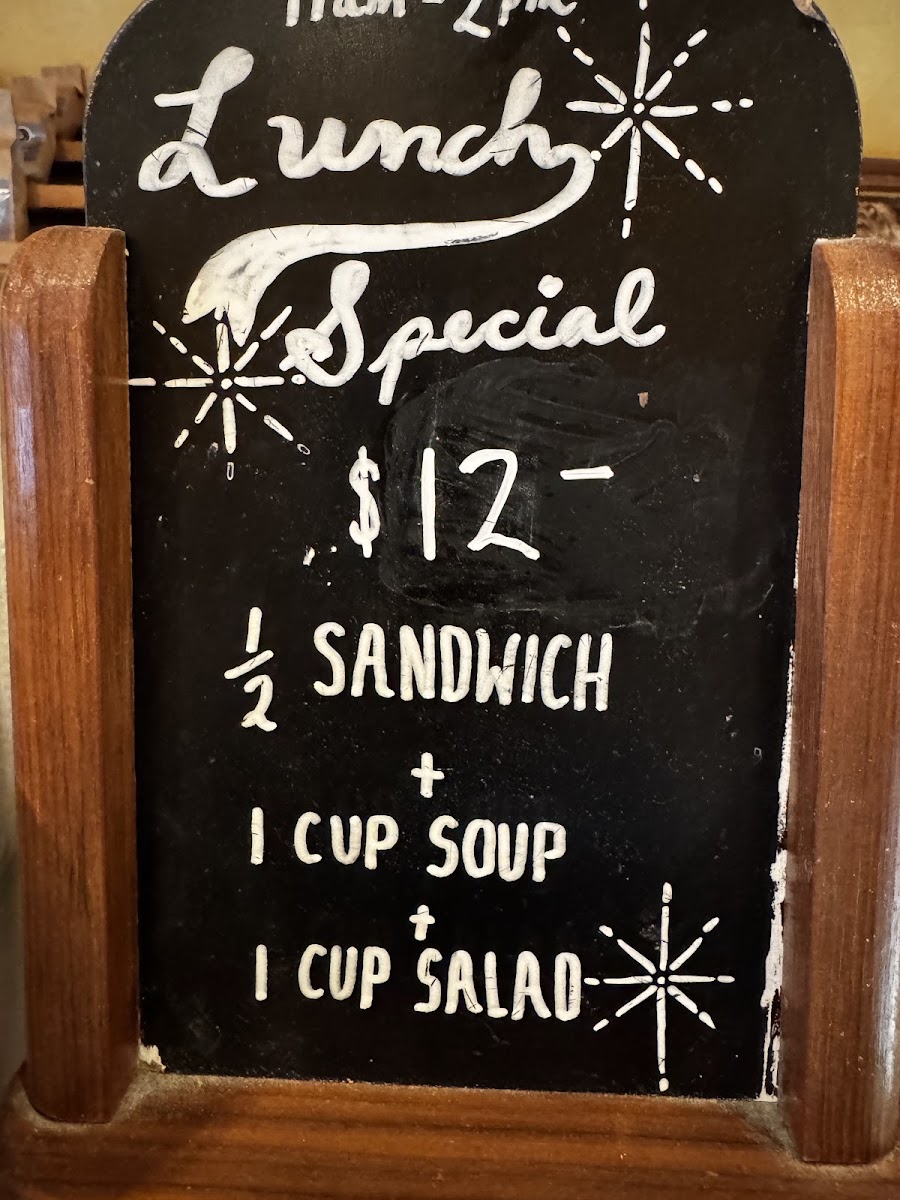 11am - 2pm
Lunch
Special
$12-
1/2 SANDWICH
+
1 CUP SOUP
+
1 CUP SALAD